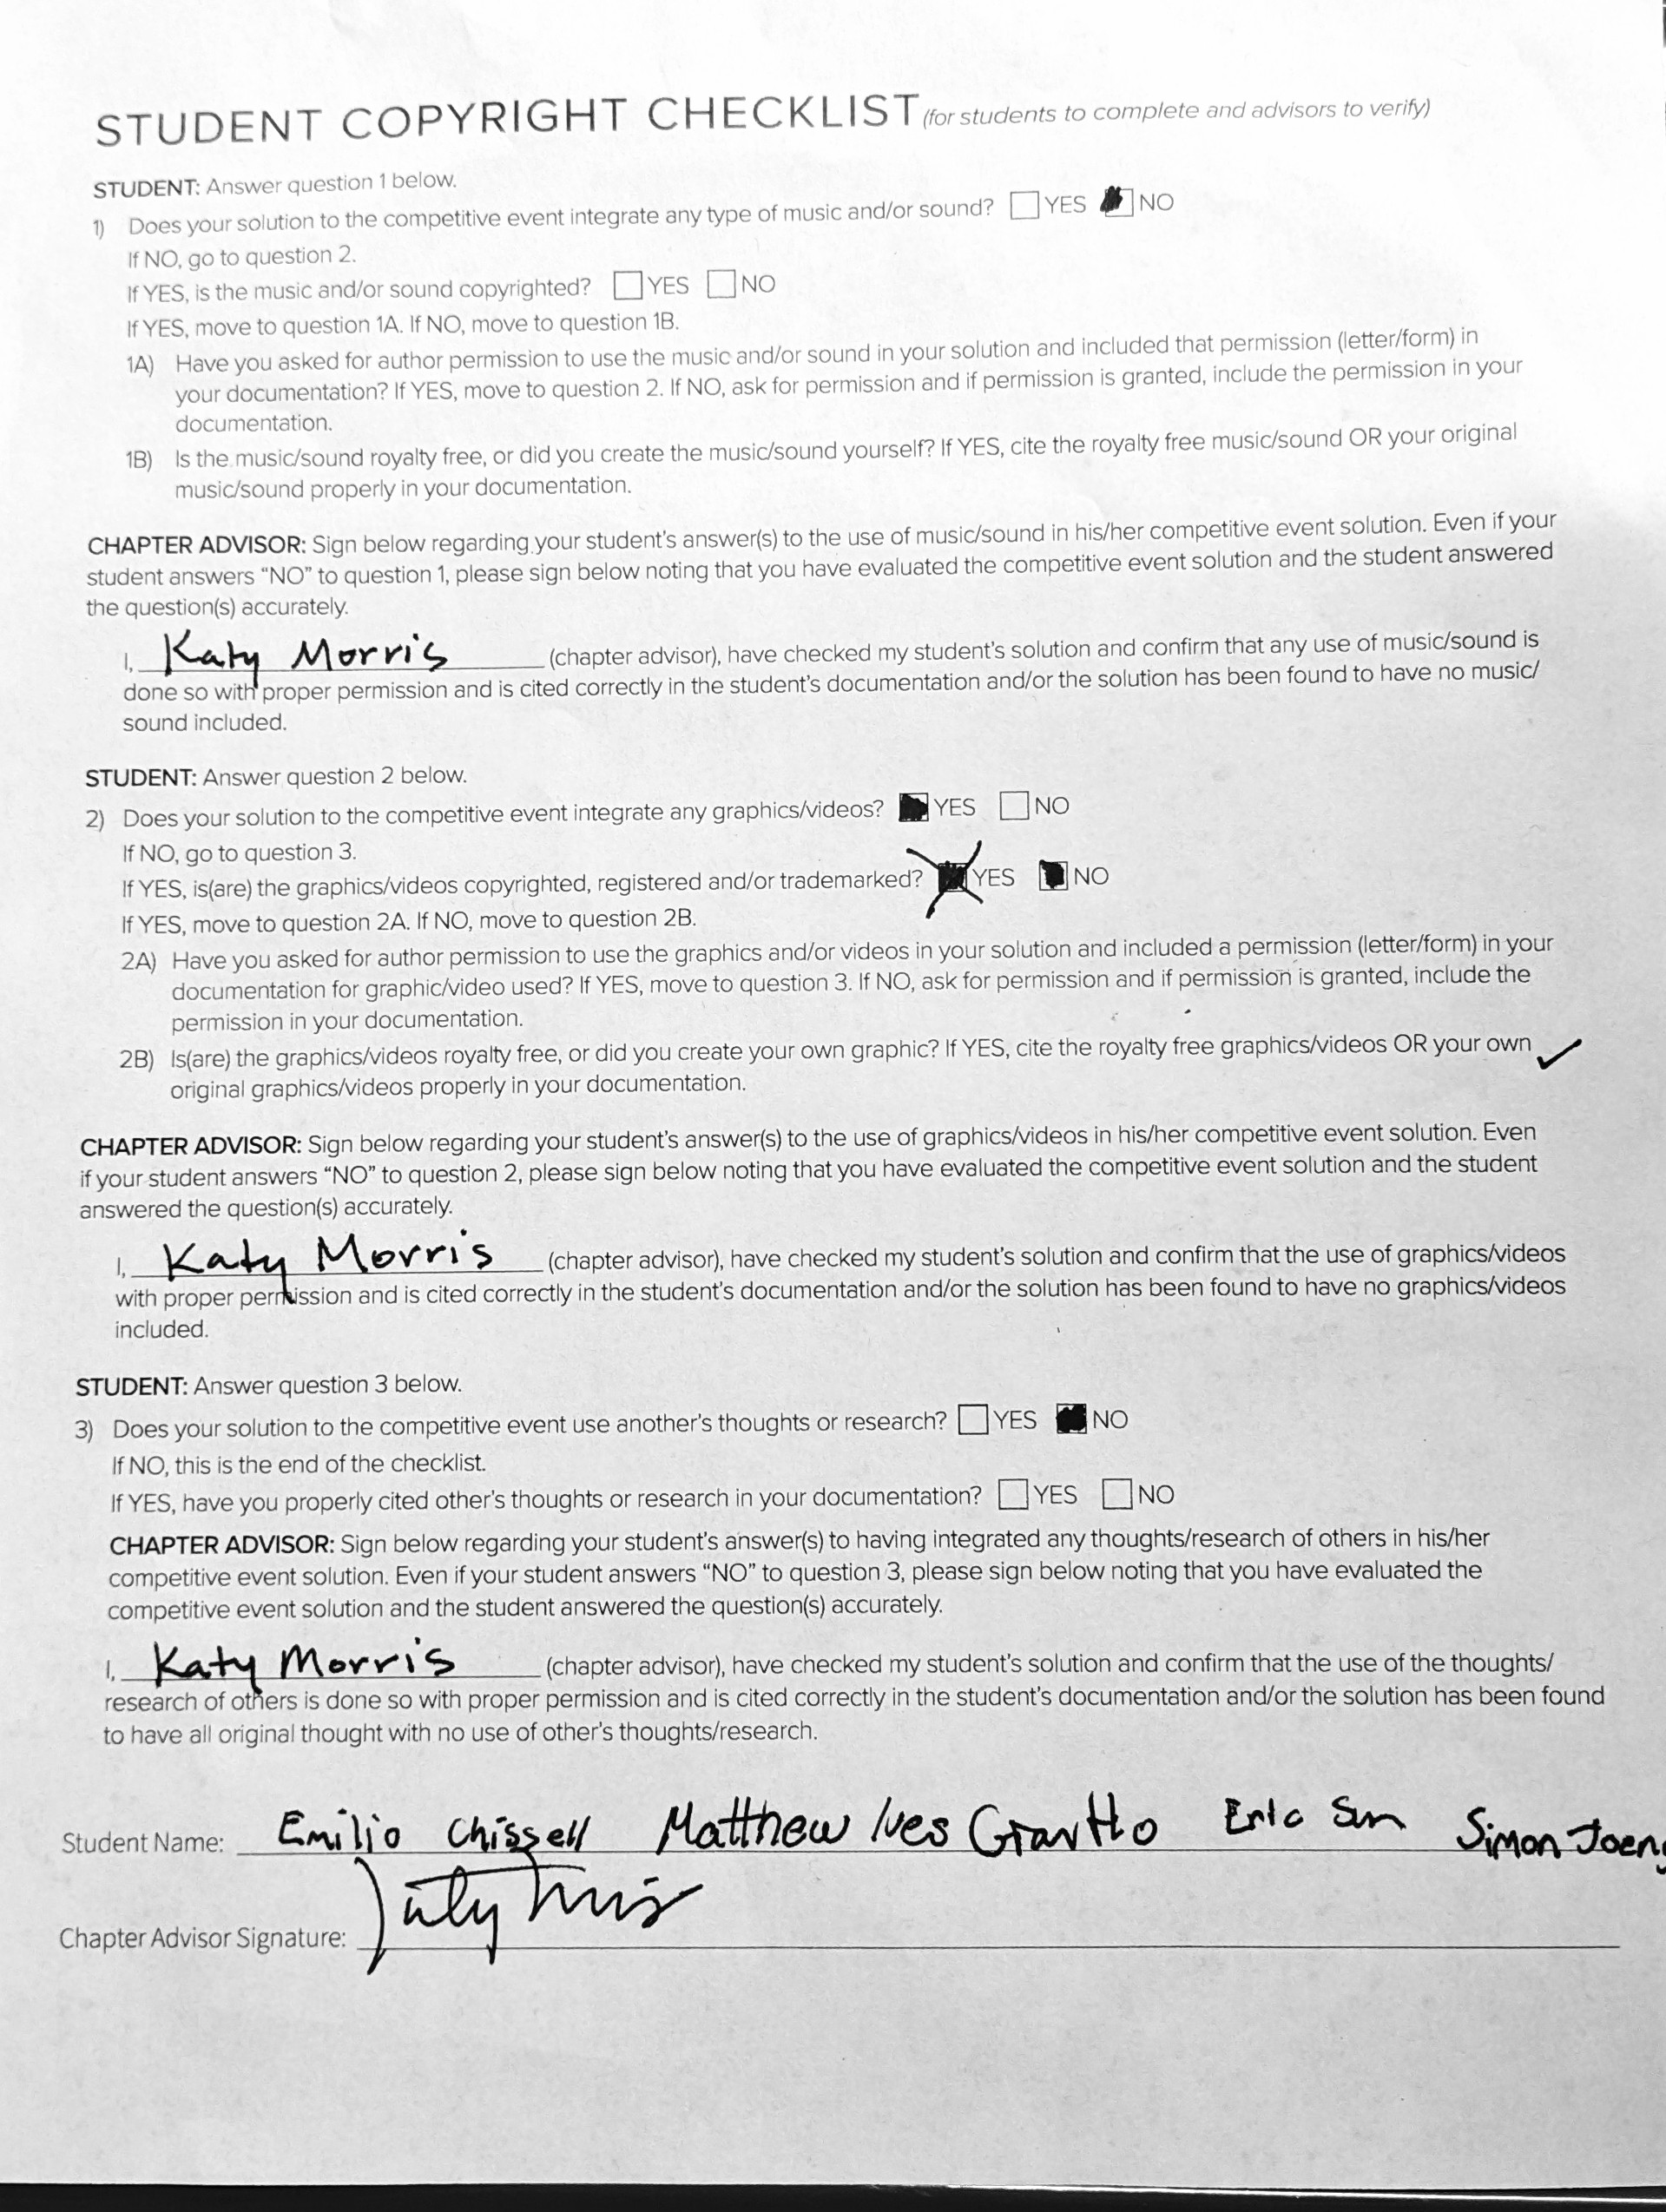 STUDENT COPYRIGHT CHECKLIST (for students to complete and advisors to verify)
STUDENT: Answer question 1 below.
1) Does your solution to the competitive event integrate any type of music and/or sound? YES NO
If NO, go to question 2.
If YES, is the music and/or sound copyrighted? YES NO
If YES, move to question 1A. If NO, move to question 1B.
1A) Have you asked for author permission to use the music and/or sound in your solution and included that permission (letter/form) in
your documentation? If YES, move to question 2. If NO, ask for permission and if permission is granted, include the permission in your
documentation.
1B) Is the music/sound royalty free, or did you create the music/sound yourself? If YES, cite the royalty free music/sound OR your original
music/sound properly in your documentation.
CHAPTER ADVISOR: Sign below regarding your student's answer(s) to the use of music/sound in his/her competitive event solution. Even if your
student answers "NO" to question 1, please sign below noting that you have evaluated the competitive event solution and the student answered
the question(s) accurately.
I, Katy Morris (chapter advisor), have checked my student's solution and confirm that any use of music/sound is
done so with proper permission and is cited correctly in the student's documentation and/or the solution has been found to have no music/
sound included.
STUDENT: Answer question 2 below.
2) Does your solution to the competitive event integrate any graphics/videos? YES NO
If NO, go to question 3.
If YES, is(are) the graphics/videos copyrighted, registered and/or trademarked? YES NO
If YES, move to question 2A. If NO, move to question 2B.
2A) Have you asked for author permission to use the graphics and/or videos in your solution and included a permission (letter/form) in your
documentation for graphic/video used? If YES, move to question 3. If NO, ask for permission and if permission is granted, include the
permission in your documentation.
2B) Is(are) the graphics/videos royalty free, or did you create your own graphic? If YES, cite the royalty free graphics/videos OR your own
original graphics/videos properly in your documentation.
CHAPTER ADVISOR: Sign below regarding your student's answer(s) to the use of graphics/videos in his/her competitive event solution. Even
if your student answers "NO" to question 2, please sign below noting that you have evaluated the competitive event solution and the student
answered the question(s) accurately.
I, Katy Morris (chapter advisor), have checked my student's solution and confirm that the use of graphics/videos
with proper permission and is cited correctly in the student's documentation and/or the solution has been found to have no graphics/videos
included.
STUDENT: Answer question 3 below.
3) Does your solution to the competitive event use another's thoughts or research? YES NO
If NO, this is the end of the checklist.
If YES, have you properly cited other's thoughts or research in your documentation? YES NO
CHAPTER ADVISOR: Sign below regarding your student's answer(s) to having integrated any thoughts/research of others in his/her
competitive event solution. Even if your student answers "NO" to question 3, please sign below noting that you have evaluated the
competitive event solution and the student answered the question(s) accurately.
I, Katy Morris (chapter advisor), have checked my student's solution and confirm that the use of the thoughts/
research of others is done so with proper permission and is cited correctly in the student's documentation and/or the solution has been found
to have all original thought with no use of other's thoughts/research.
Student Name: Emilio Chissell Matthew Ives Eric Sun Simon
Chapter Advisor Signature: